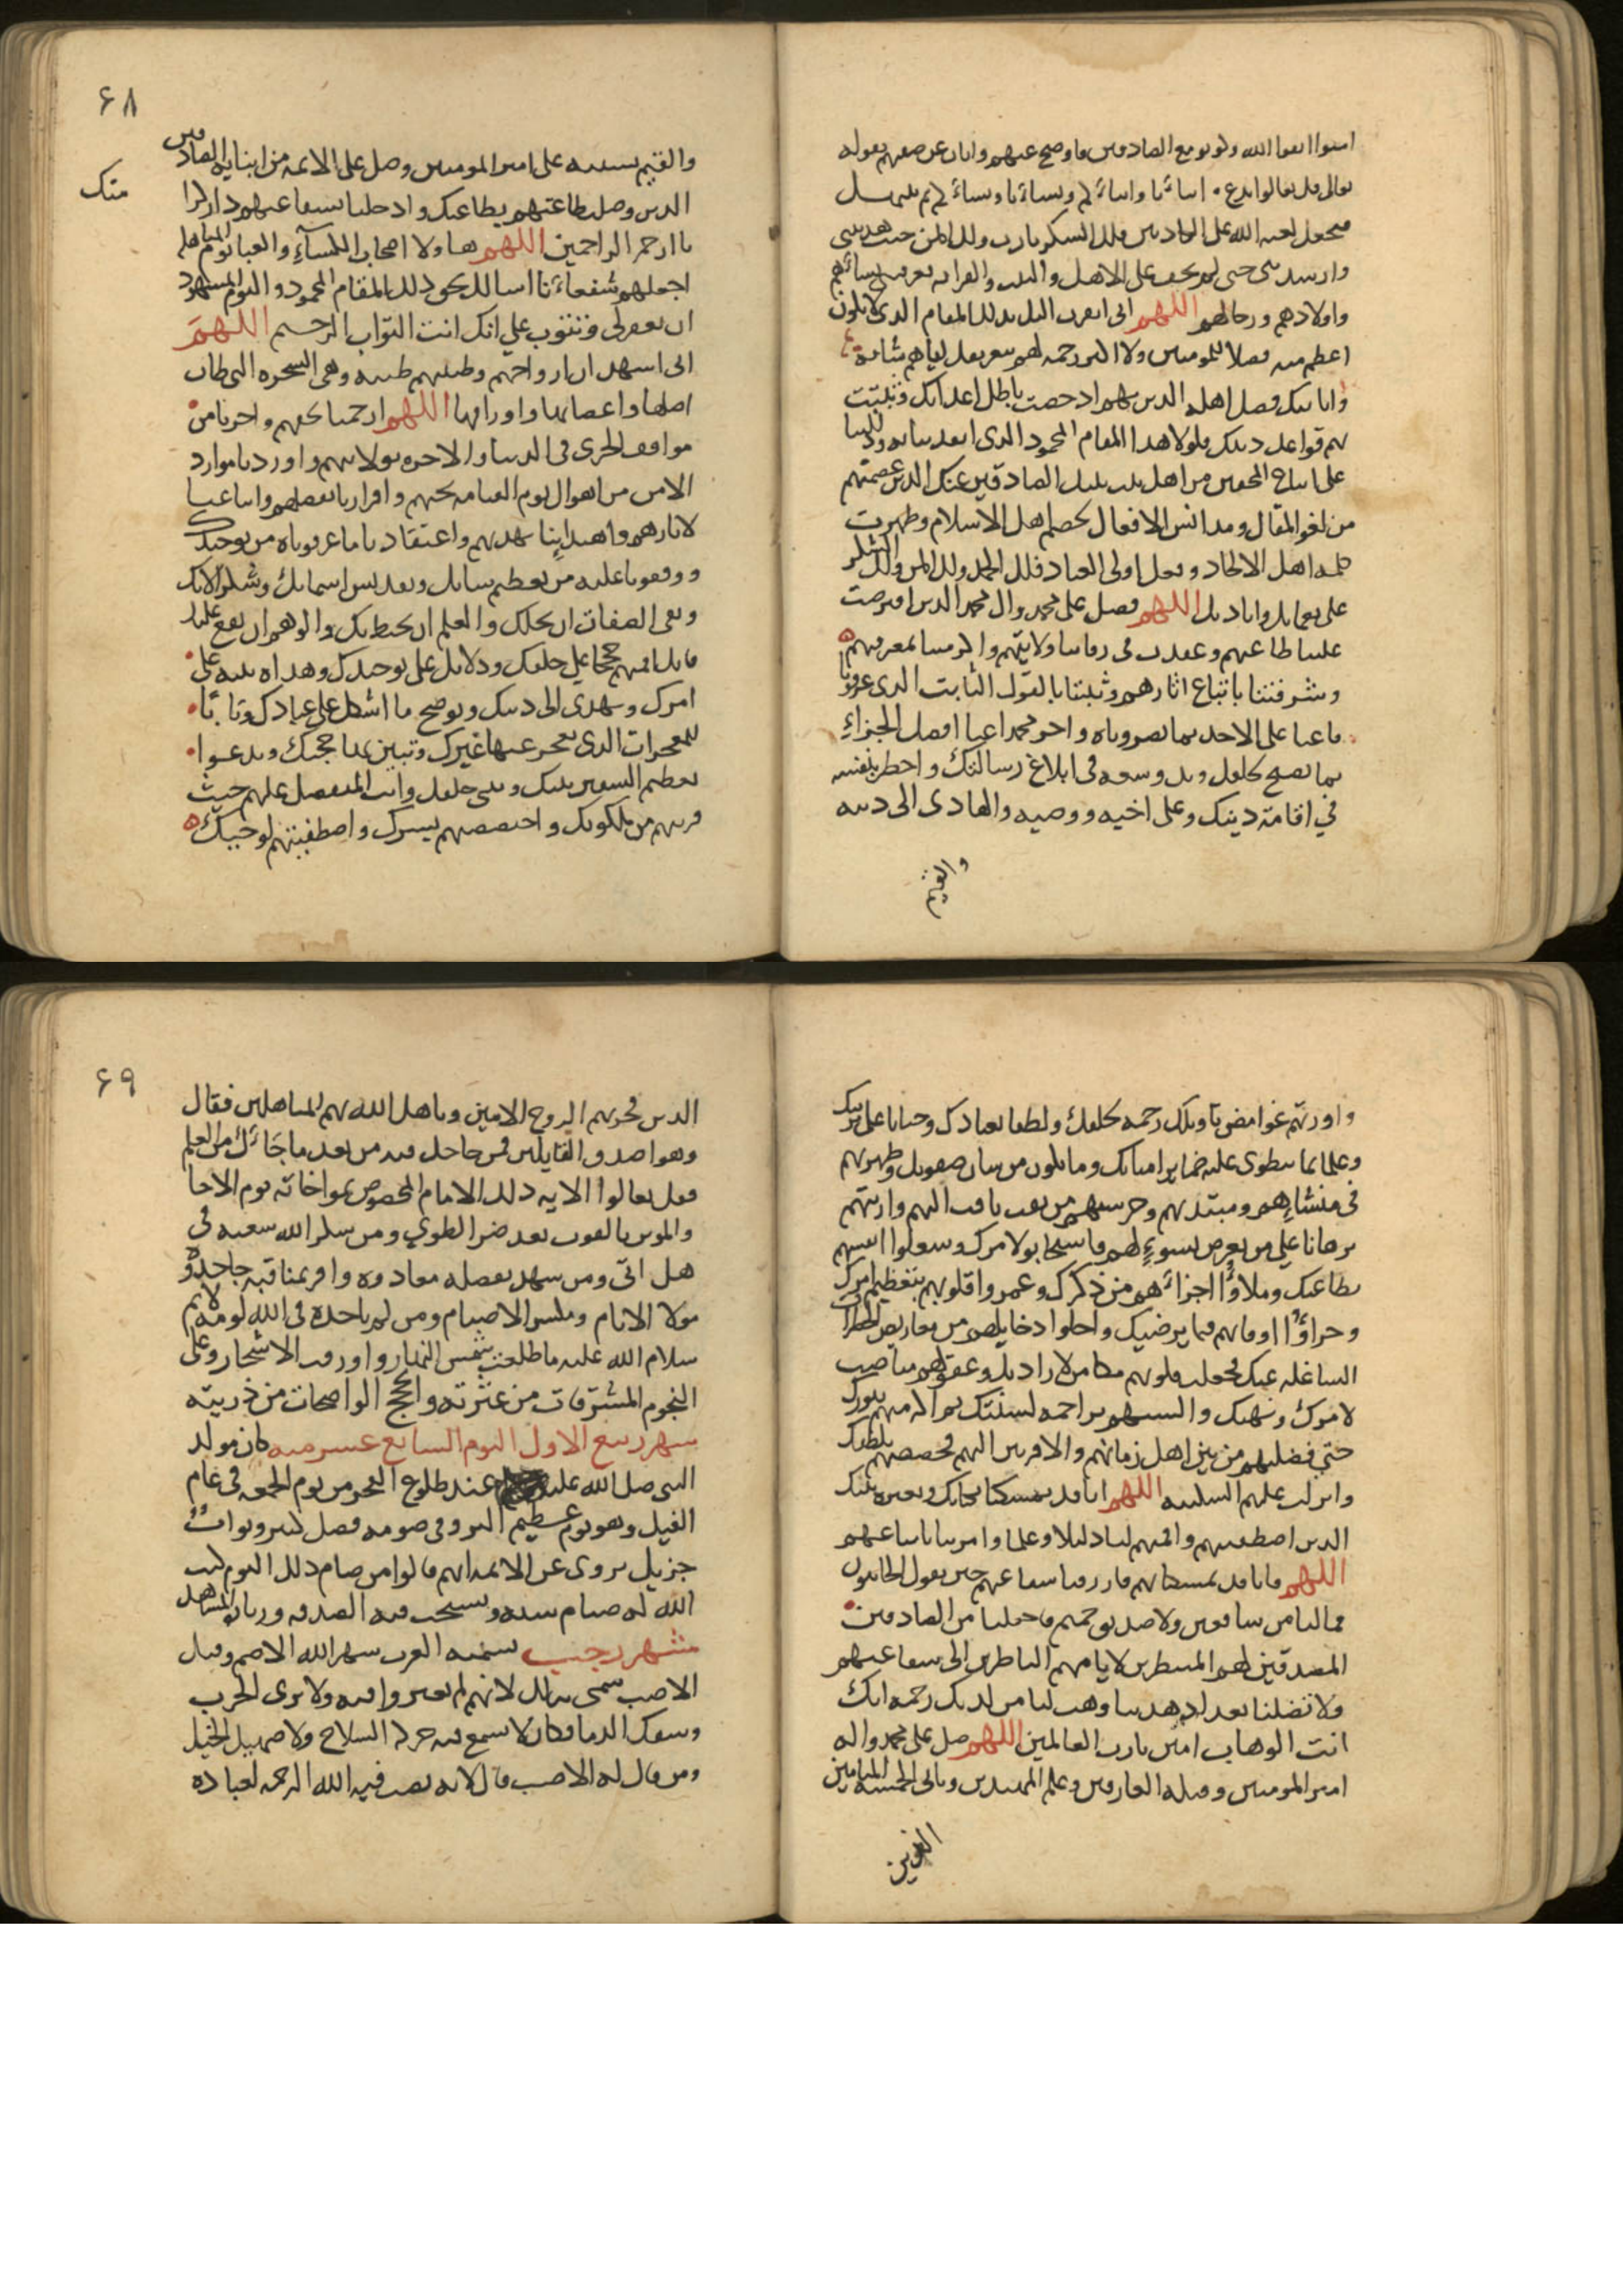 امنوا اتقوا الله وكونوا مع الصادقين فاوضح عنهم وابان عن صفتهم بقوله
تعالى قل تعالوا ندع ابنائنا وابنائكم ونسائنا ونسائكم ثم نبتهل
فنجعل لعنه الله على الكاذبين فلك الشكر يارب ولك المن حيث هديتني
وارشدتني حتى لم يخف على الاهل والبيت والقرابه فعرفتني نسائهم
واولادهم ورجالهم اللهم انى اتقرب اليك بذلك المقام الذى لا يكون
اعظم منه فضلا للمومنين ولا اكثر رحمه لهم بتعريفك اياهم شانه
وابانتك فضل اهله الذين بهم ادحضت باطل اعدائك وثبتت
بهم قواعد دينك فلولا هذا المقام المحمود الذى انقذتنا به ودللتنا
على اتباع المحقين من اهل بيت نبيك الصادقين عنك الذين عصمتهم
من لغو المقال ومدانس الافعال لخصم اهل الاسلام وظهرت
كلمه اهل الالحاد وفعل اولى العناد فلك الحمد ولك المن ولك الشكر
على نعمايك واياديك اللهم فصل على محمد وال محمد الذين افترضت
علينا طاعتهم وعقدت فى رقابنا ولايتهم واكرمتنا بمعرفتهم
وشرفتنا باتباع اثارهم وثبتنا بالقول الثابت الذى عرفونا
فاعنا على الاخذ بما بصروناه واجز محمدا عنا افضل الجزاءِ
بما نصح لخلقك وبذل وسعه فى ابلاغ رسالتك واخطر بنفسه
في اقامة دينك وعلى اخيه ووصيه والهادى الى دينه
والقيم
۶۸
والقيم بسنته على امير المومنين وصل على الائمه من ابنايه الصادقين
الذين وصلت طاعتهم بطاعتك وادخلنا بشفاعتهم دار كرامتك
يا ارحم الراحمين اللهم هاولا اصحاب الكساءِ والعبا يوم المباهله
اجعلهم شفعاءنا اسالك بحق ذلك المقام المحمود واليوم المشهود
ان تغفر لى وتتوب علي انك انت التواب الرحيم اللهم
انى اشهد ان ارواحهم وطينتهم طينه وهى الشجره التى طاب
اصلها واغصانها واوراقها اللهم ارحمنا بحقهم واجرنا من
مواقف الخزى فى الدنيا والاخره بولايتهم واوردنا موارد
الامن من اهوال يوم القيامه بحبهم واقرارنا بفضلهم واتباعنا
لاثارهم واهتدائنا بهديهم واعتقادنا ما عرفوناه من توحيدك
ووقفونا عليه من تعظيم شانك وتقديس اسمائك وشكر الائك
ونفى الصفات ان تحلك والعلم ان يحيط بك والوهم ان يقع عليك
فانك اقمتهم حججا على خلقك ودلايل على توحيدك وهداه تنبه على
امرك وتهدى الى دينك وتوضح ما اشكل على عبادك وبابا
للمعجزات التى يعجز عنها غيرك وتبين بها حجتك وتدعوا
تعظيم السفير بينك وبين خلقك وانت المتفضل عليهم حيث
قربتهم من ملكوتك واختصصتهم بسرك واصطفيتهم لوحيك
واورثتهم غوامض تاويلك رحمه لخلقك ولطفا بعبادك وحنانا على بريتك
وعلما بما تنطوى عليه ضماير امنائك وما يكون من شان صفوتك وطهرتهم
فى منشاِهم ومبتدئهم وحرستهم من نفث نافث اليهم واريتهم
برهانا على من يعرض بسوءٍ لهم فاستجابوا لامرك وشغلوا انفسهم
بطاعتك وملاوُا اجزائهم من ذكرك وعمروا قلوبهم بتعظيم امرك
وجزاوُا اوقاتهم فيما يرضيك واخلوا دخايلهم من معاريض الخطرات
الشاغله عنك فجعلت قلوبهم مكامن لارادتك وعقولهم مناصب
لامرك ونهيك والسنتهم تراجمه لسنتك ثم اكرمتهم بنورك
حتى فضلتهم من بين اهل زمانهم والاقربين اليهم فخصصتهم بلطفك
وانزلت عليهم السكينه اللهم انا قد تمسكنا بكتابك وبعتره نبيك
الذين اصطفيتهم واقمتهم لنا دليلا وعلما وامرتنا باتباعهم
اللهم فانا قد تمسكنا بهم فارزقنا شفاعتهم حين يقول الخايبون
فما لنا من شافعين ولا صديق حميم فاجعلنا من الصادقين
المصدقين لهم المنتظرين لايامهم الناظرين الى شفاعتهم
ولا تضلنا بعد اذ هديتنا وهب لنا من لدنك رحمه انك
انت الوهاب امين يارب العالمين اللهم صل على محمد واله
امير المومنين وقبله العارفين وعلم المهتدين وثانى الخمسه الميامين
الذين
۶۹
الذين فخر بهم الروح الامين وباهل الله بهم المباهلين فقال
وهو اصدق القايلين فمن حاجك فيه من بعد ما جَائك من العلم
فقل تعالوا الايه ذلك الامام المخصوص بمواخاته يوم الاخا
والموثر بالقوت بعد ضر الطوي ومن شكر الله سعيه فى
هل اتى ومن شهد بفضله معادوه واقر بمناقبه جاحدوه
مولا الانام ومكسر الاصنام ومن لم ياخذه فى الله لومه لائم
سلام الله عليه ما طلعت شمس النهار واورقت الاشجار وعلى
النجوم المشرقات من عترته والحجج الواضحات من ذريته
شهر ربيع الاول اليوم السابع عشر منه كان مولد
النبى صل الله عليه عند طلوع الفجر من يوم الجمعه فى عام
الفيل وهو يوم عظيم البر وفى صومه فضل كثير وثواب
جزيل يروى عن الائمه انهم قالوا من صام ذلك اليوم كتب
الله له صيام سنه ويستحب فيه الصدقه وزياره المشاهد
شهر رجب تسميه العرب شهر الله الاصم وقيل
الاصب سمى بذلك لانهم لم يغيروا فيه ولا يرى الحرب
وسفك الدما فكان لا يسمع فيه حركه السلاح ولا صهيل الخيل
ومن قال له الاصب قال لانه يصب فيه الله الرحمه لعباده